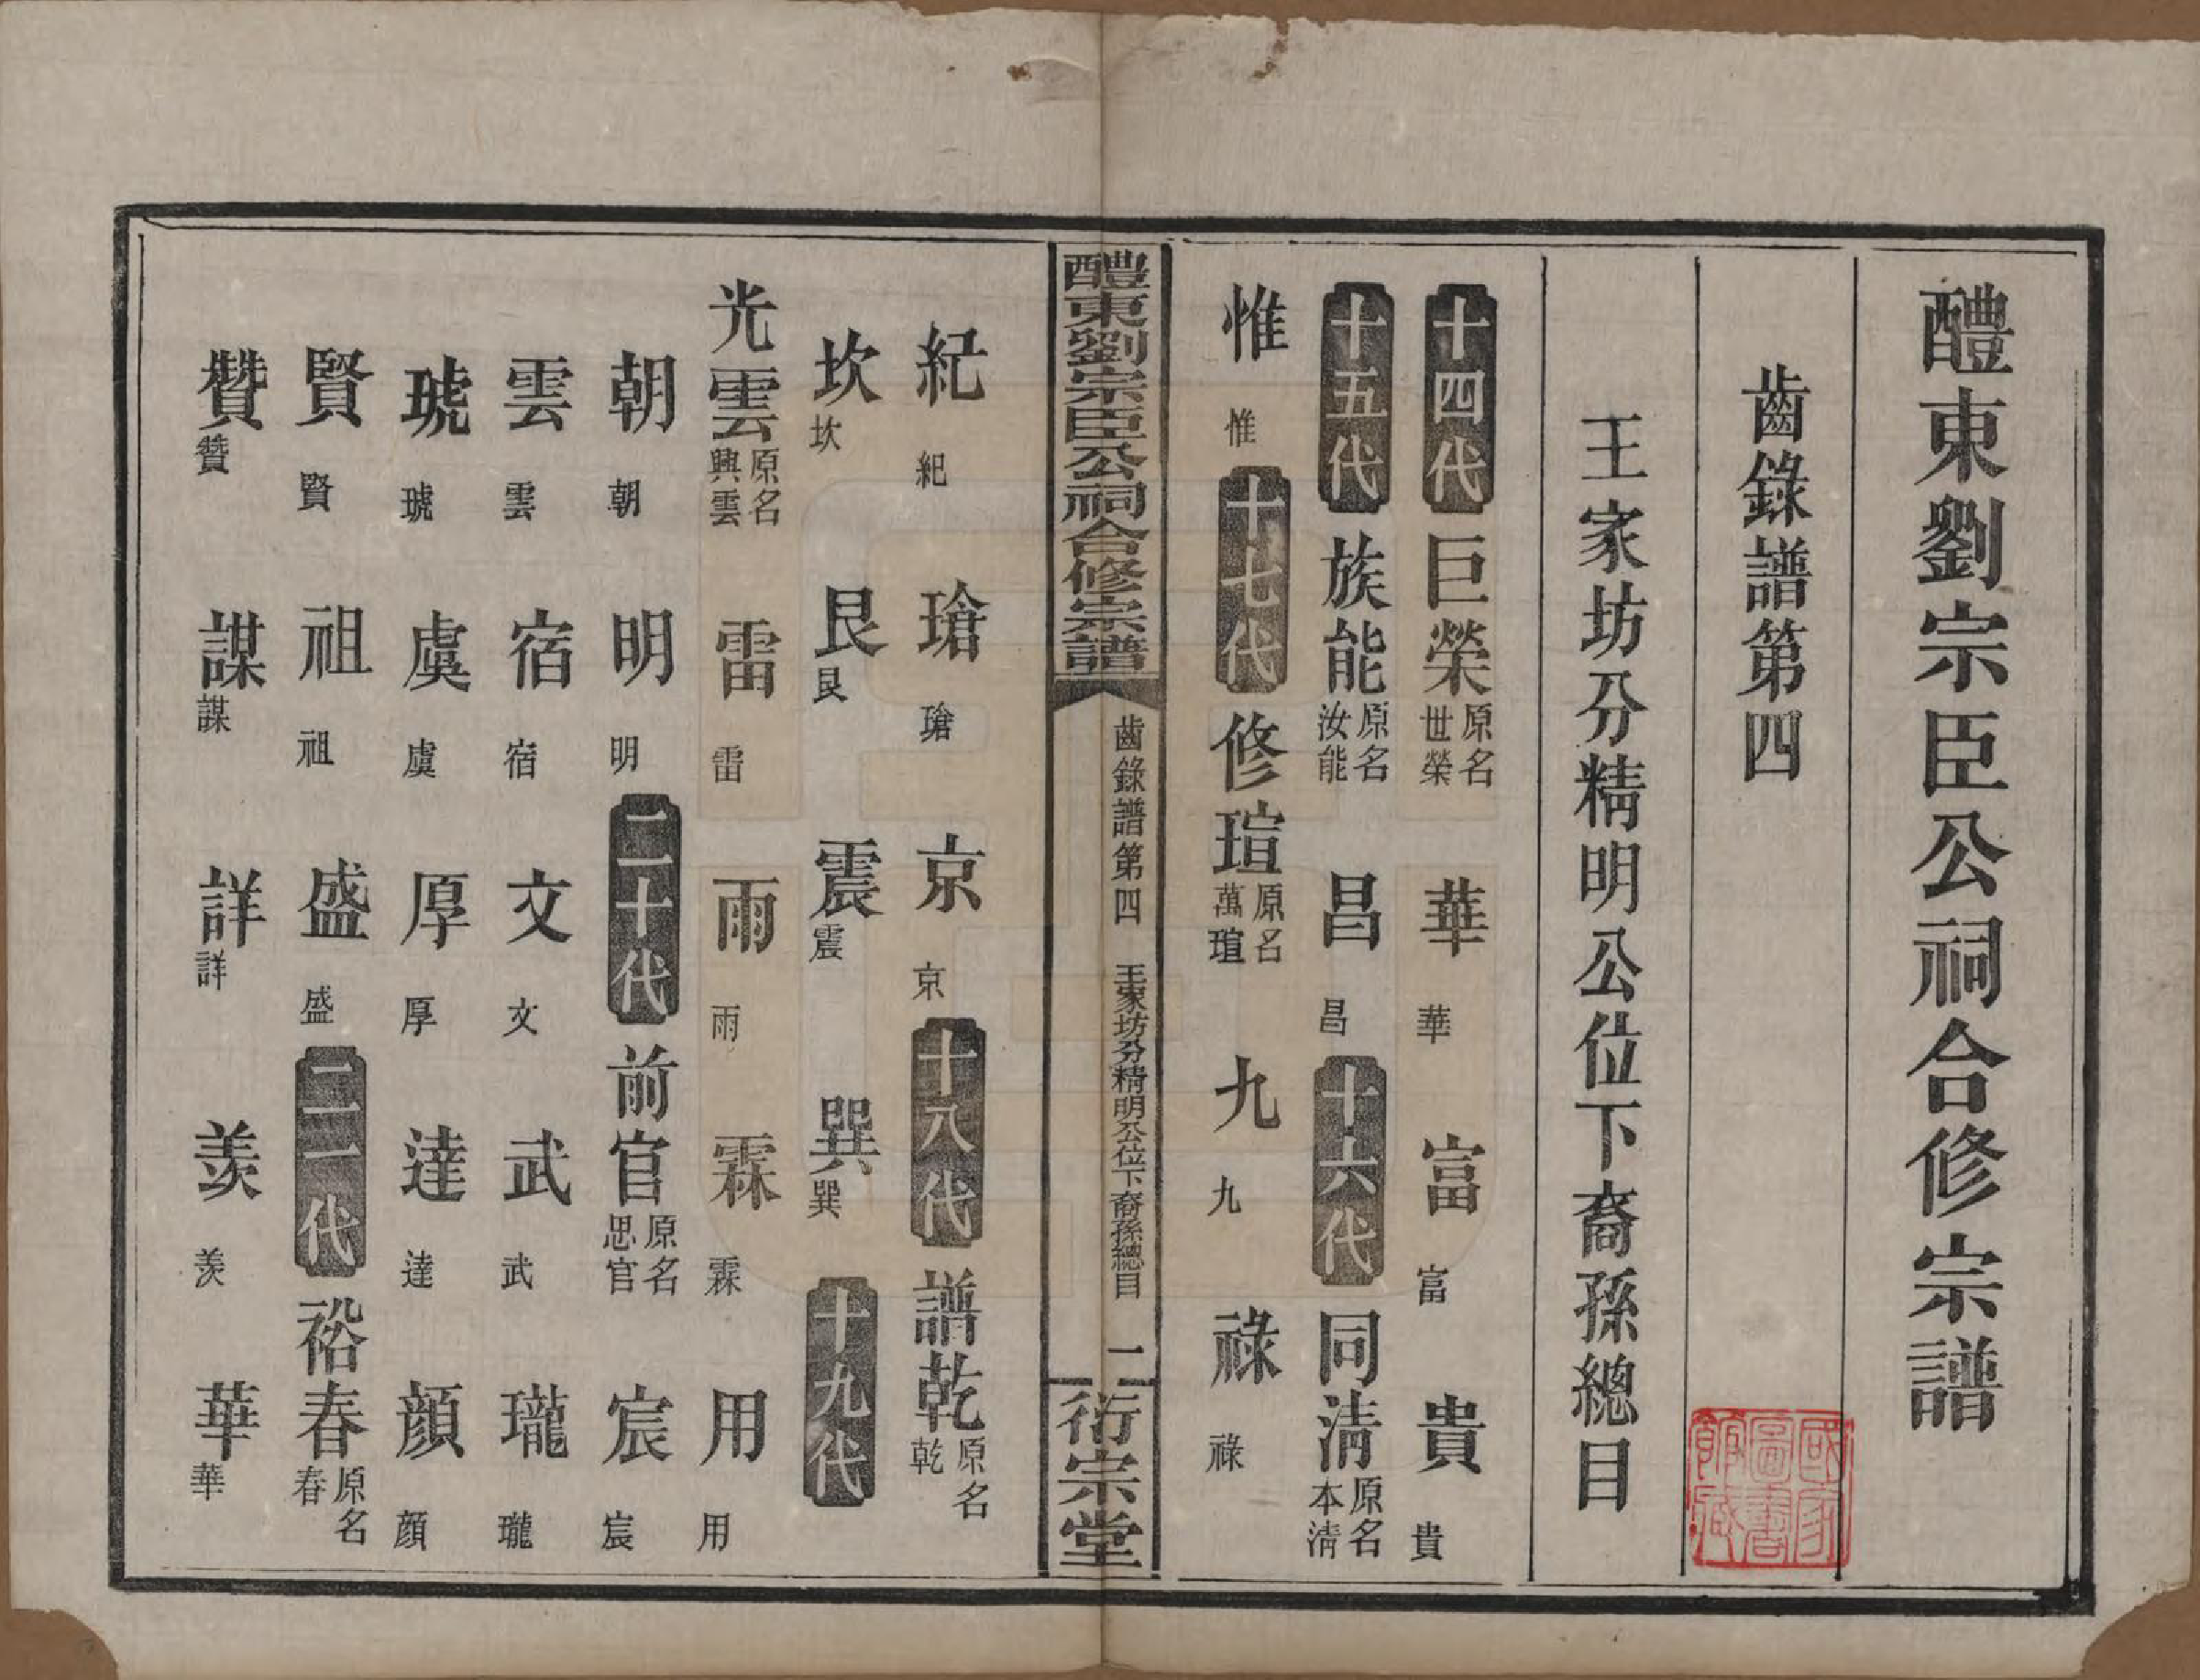 醴東劉宗臣公祠合修宗譜
齒錄譜第四
王家坊分精明公位下裔孫總目
十四代 巨榮 原名世榮 華 華 富 富 貴 貴
十五代 族能 原名汝能 昌 昌 十六代 同清 原名本清
惟 惟 十七代 修瑄 原名萬瑄 九 九 祿 祿
醴東劉宗臣公祠合修宗譜 齒錄譜第四 王家坊分精明公位下裔孫總目 一 衍宗堂
紀 紀 瑲 瑲 京 京 十八代 譜乾 原名乾
坎 坎 艮 艮 震 震 巽 巽 十九代
光雲 原名興雲 雷 雷 雨 雨 霖 霖 用 用
朝 朝 明 明 二十代 前官 原名思官 宸 宸
雲 雲 宿 宿 文 文 武 武 瓏 瓏
琥 琥 虞 虞 厚 厚 達 達 顔 顔
賢 賢 祖 祖 盛 盛 二一代 裕春 原名春
贊 贊 謀 謀 詳 詳 羨 羨 華 華
國家圖書館藏